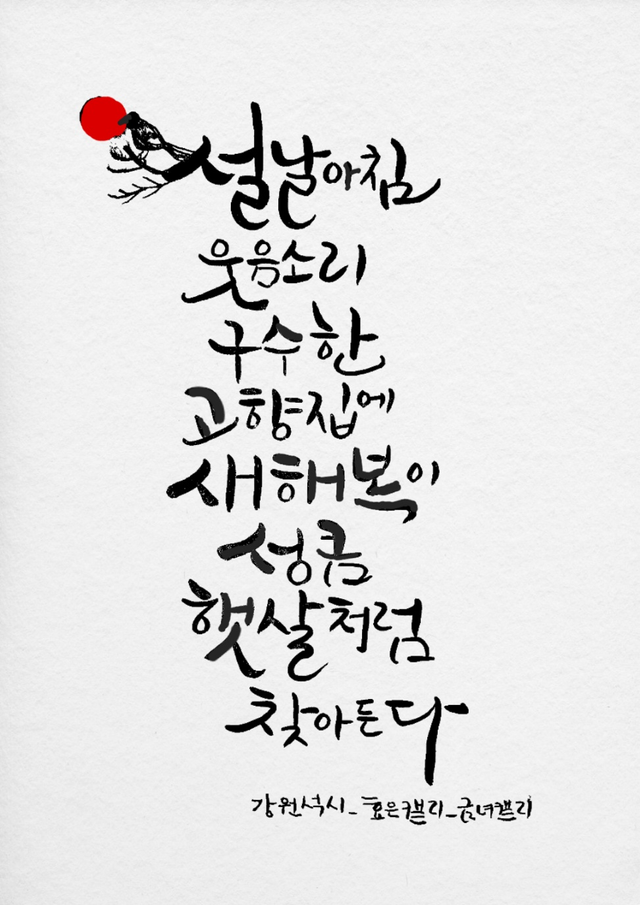 설날아침
웃음소리
구수한
고향집에
새해복이
성큼
햇살처럼
찾아든다
강원석시_효은캘리_금녀캘리